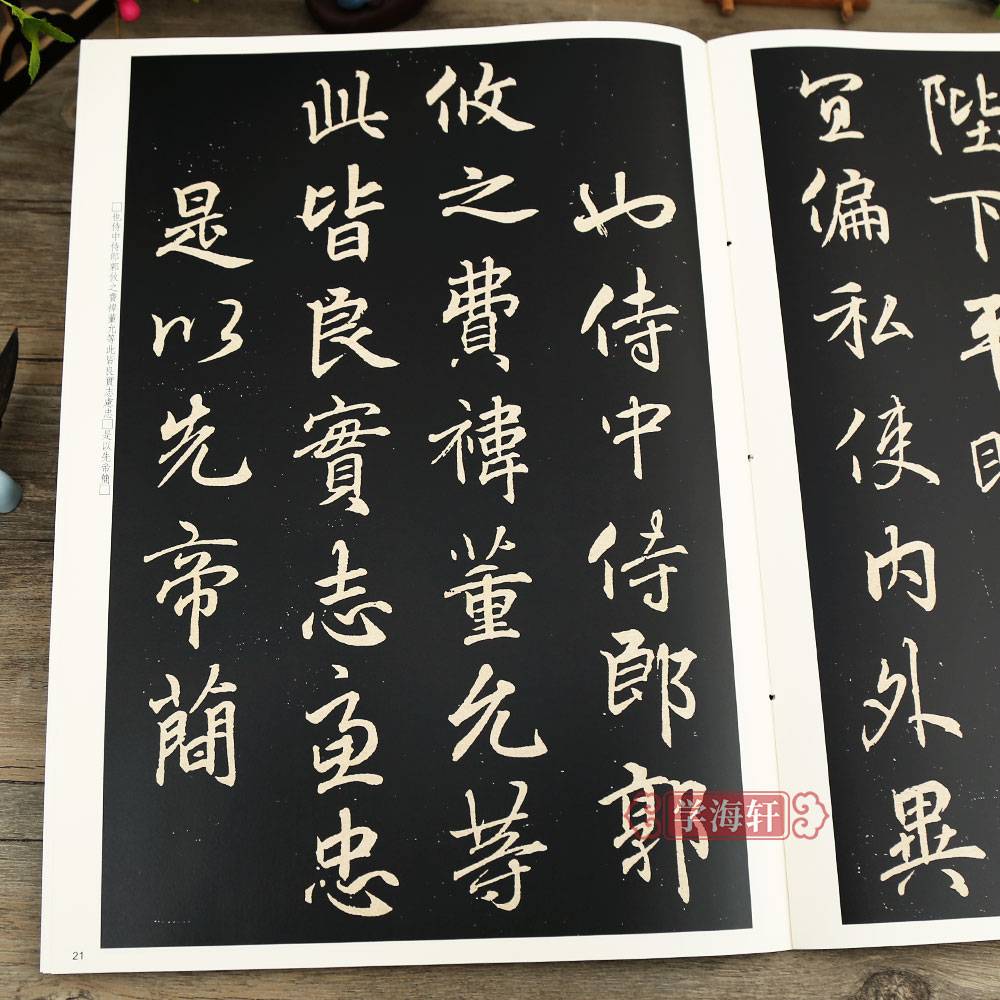 陛下平明
宜偏私使内外異
也侍中侍郎郭
攸之費禕董允等
此皆良實志慮忠
是以先帝簡
□也侍中侍郎郭攸之費禕董允等此皆良實志慮忠□是以先帝簡□
21
学海轩